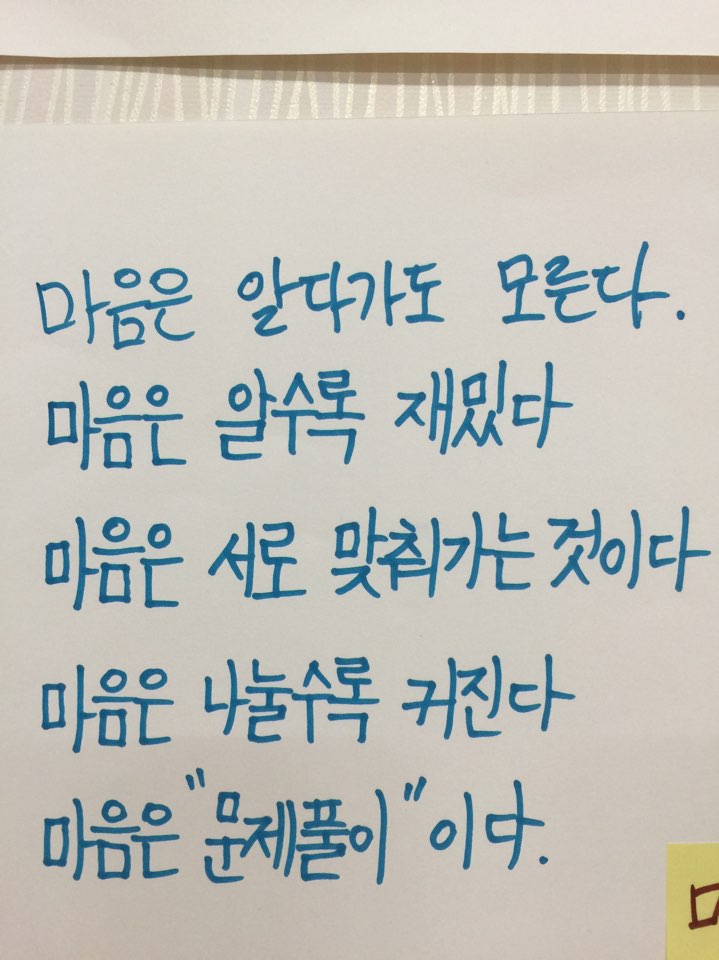 마음은 알다가도 모른다.
마음은 알수록 재밌다
마음은 서로 맞춰가는 것이다
마음은 나눌수록 커진다
마음은 "문제풀이"이다.